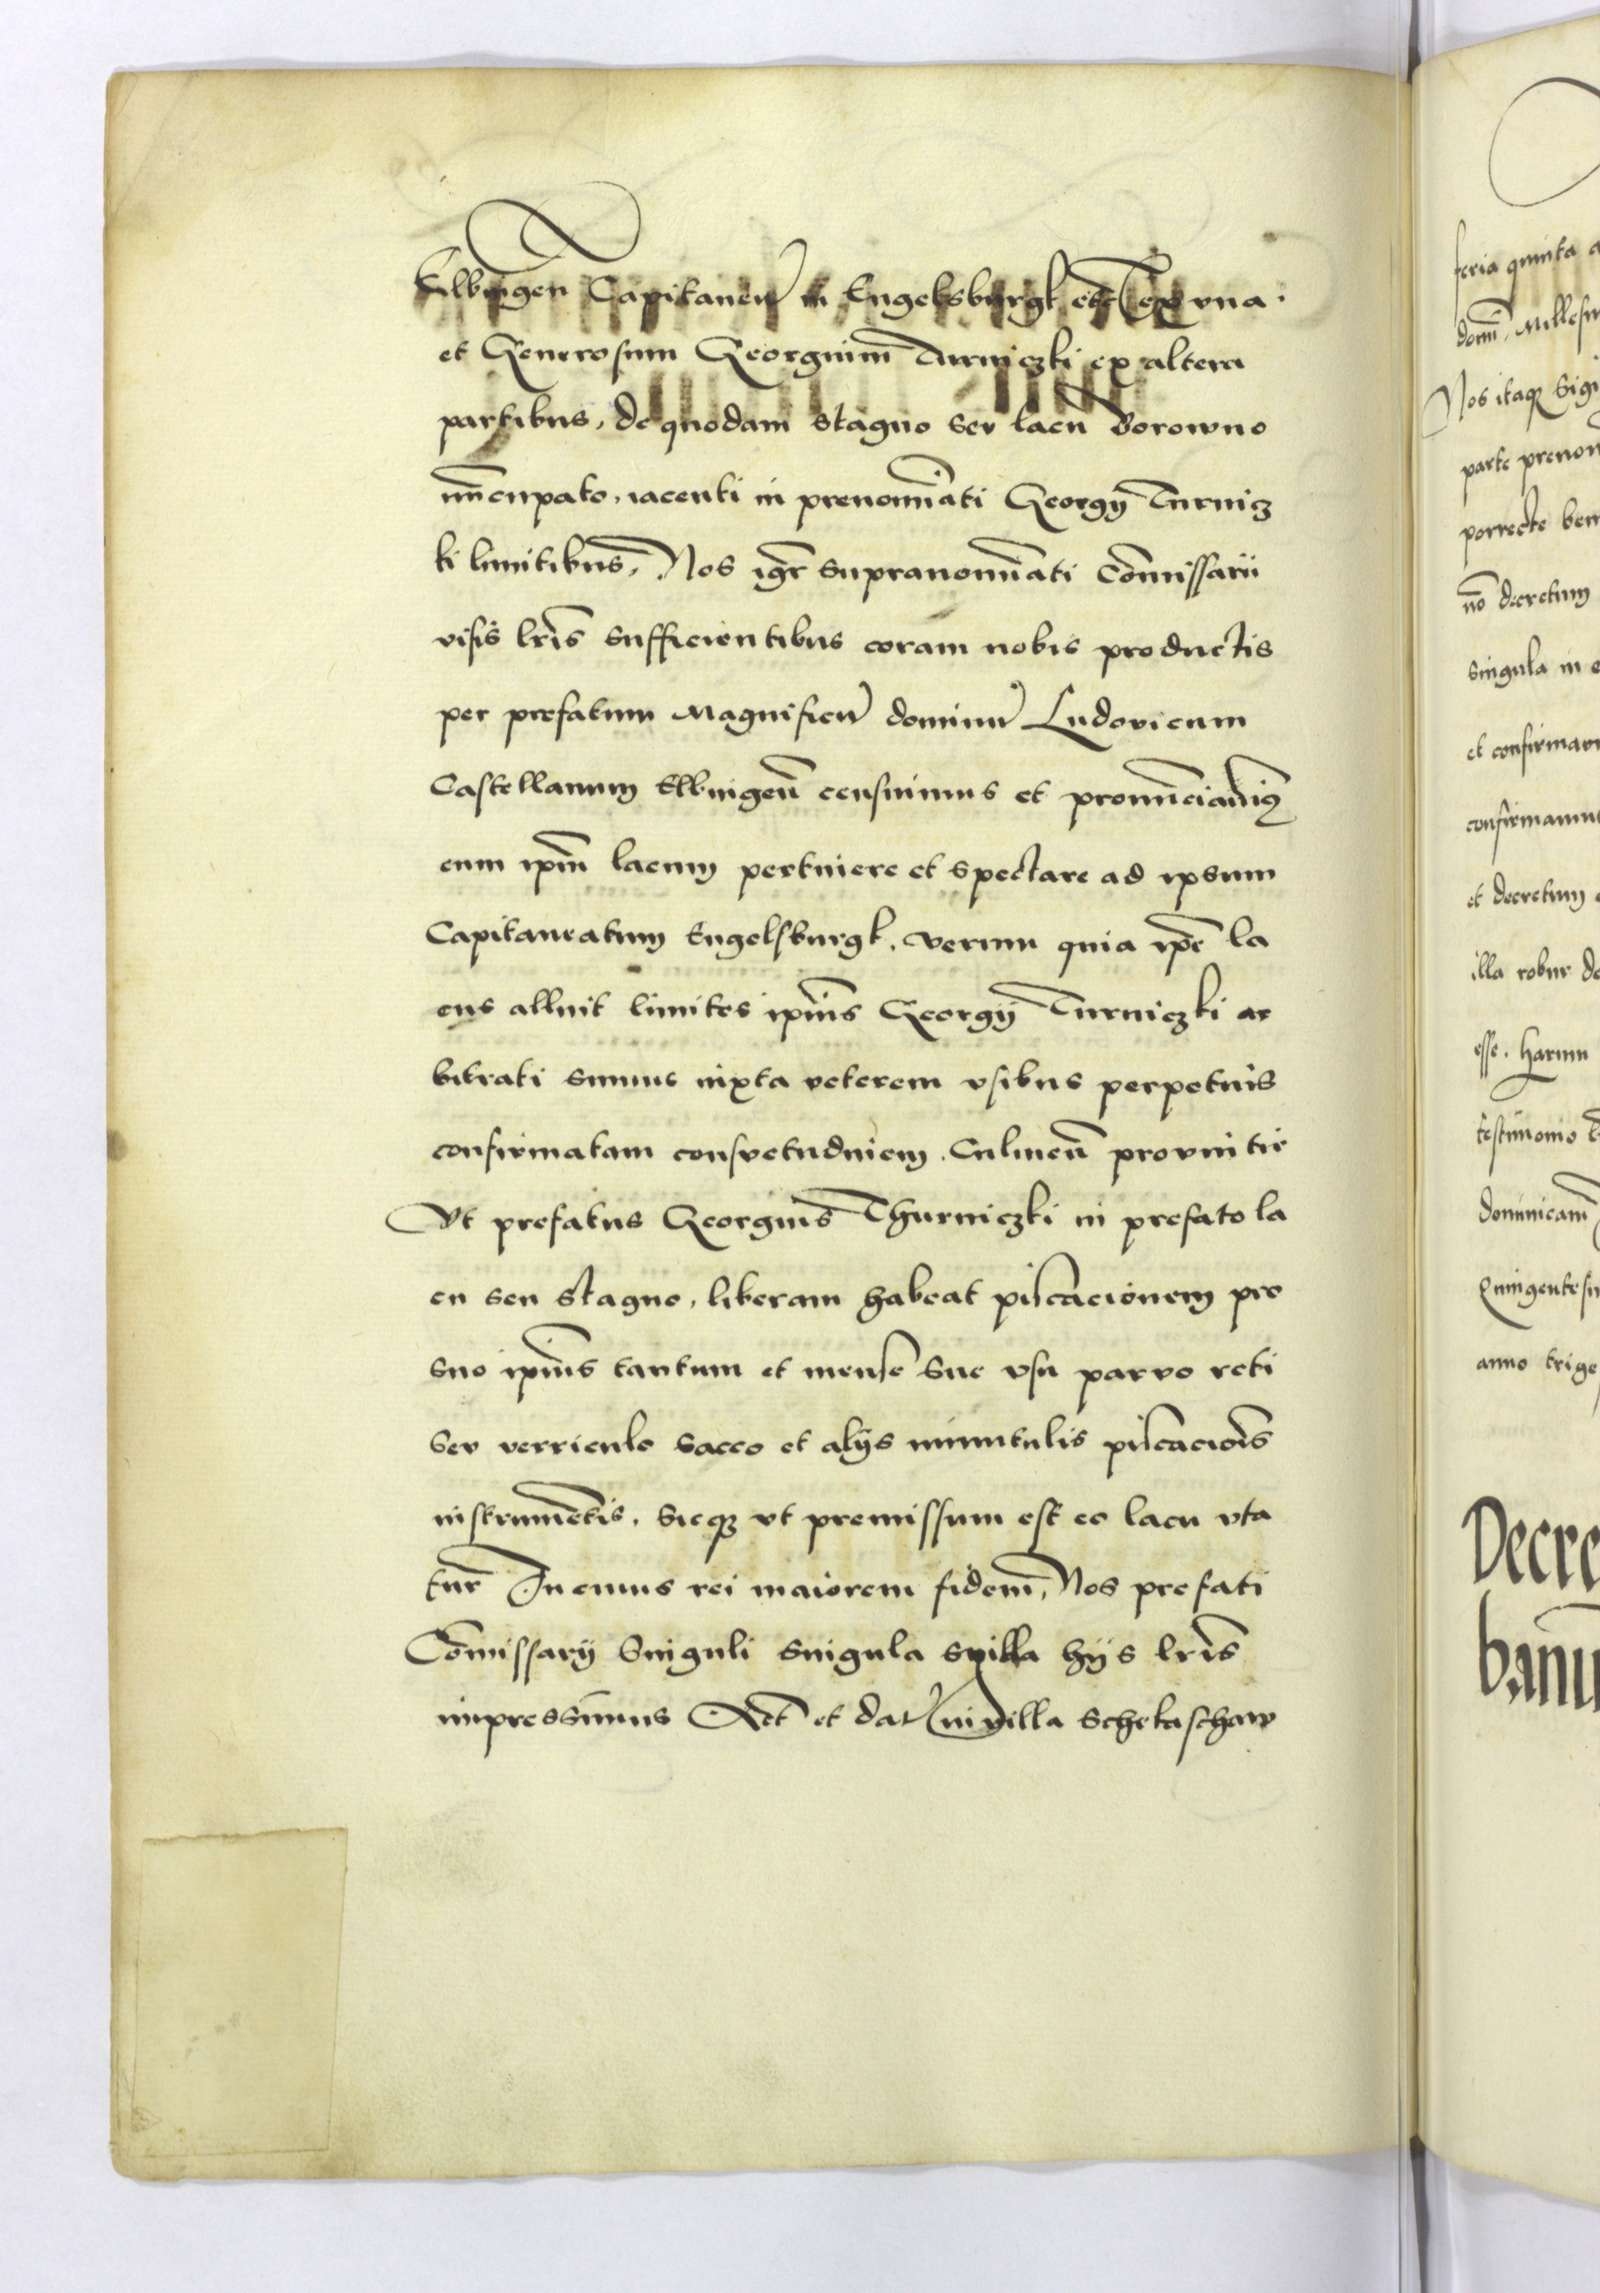 Elbingen̄ Capitaneū in Engelsburgk etc̄ ex vna.
et Generosum Georgium Turniczki ex altera
partibus, de quodam stagno seu lacu Borowno
nūncupato, iacenti in prenomīati Georgij Turnicz
ki limitibus, Nos igr̄ supranomīati Cōmissarii
visis lr̄is sufficientibus coram nobis productis
per prefatum Magnificū dominū Ludovicum
Castellanum Elbingen̄ censuimus et pronūnciauimꝰ
eum ip̄m lacum pertinere et spectare ad ipsum
Capitaneatum Engelsburgk, verum quia ip̄e la
cus alluit limites ip̄ius Georgij Turniczki ar
bitrati sumus iuxta veterem vsibus perpetuis
confirmatam consvetudinem. Culmen̄ provintie
Vt prefatus Georgius Thurniczki in prefato la
cu seu stagno, liberam habeat piscacionem pro
suo ip̄ius tantum et mense sue vsu parvo reti
seu verriculo sacco et alijs minutulis piscaciōis
instrumētis, sicqꝫ vt premissum est eo lacu vta
tur̄ In cuius rei maiorem fidem, Nos prefati
Cōmissarij Singuli singula sigilla hijs lr̄is
impressimus Act̄ et dat̄ in villa Schekaschaw
feria quinta a
domī, Millesi
Nos itaqꝫ Sigi
parte prenom
porrecte
nō decretum
singula in e
et confirmari
confirmamu
et decretum
illa robur de
esse. harum
testimonio
dominicam
Quingentesi
anno trige
Decre
banu